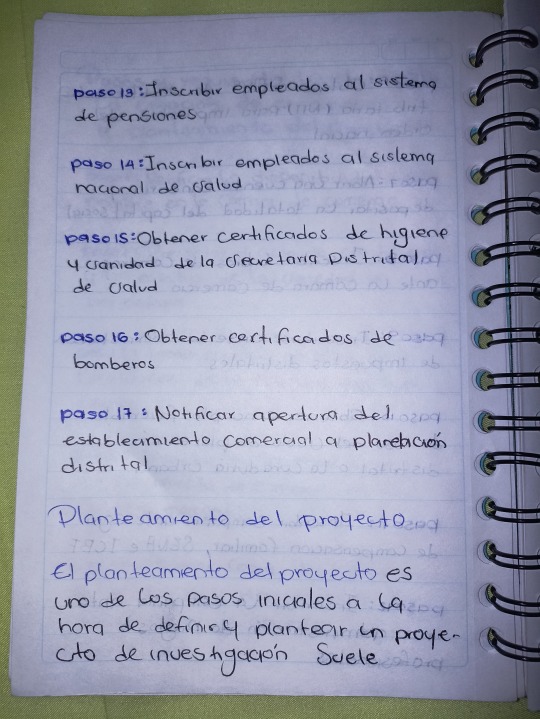 paso 13: Inscribir empleados al sistema
de pensiones
paso 14: Inscribir empleados al sistema
nacional de salud
paso 15: Obtener certificados de higiene
y sanidad de la Secretaria Distrital
de salud
paso 16: Obtener certificados de
bomberos
paso 17: Notificar apertura del
establecimiento comercial a planeación
distrital
Planteamiento del proyecto
El planteamiento del proyecto es
uno de los pasos iniciales a la
hora de definir y plantear un proye-
cto de investigación Suele